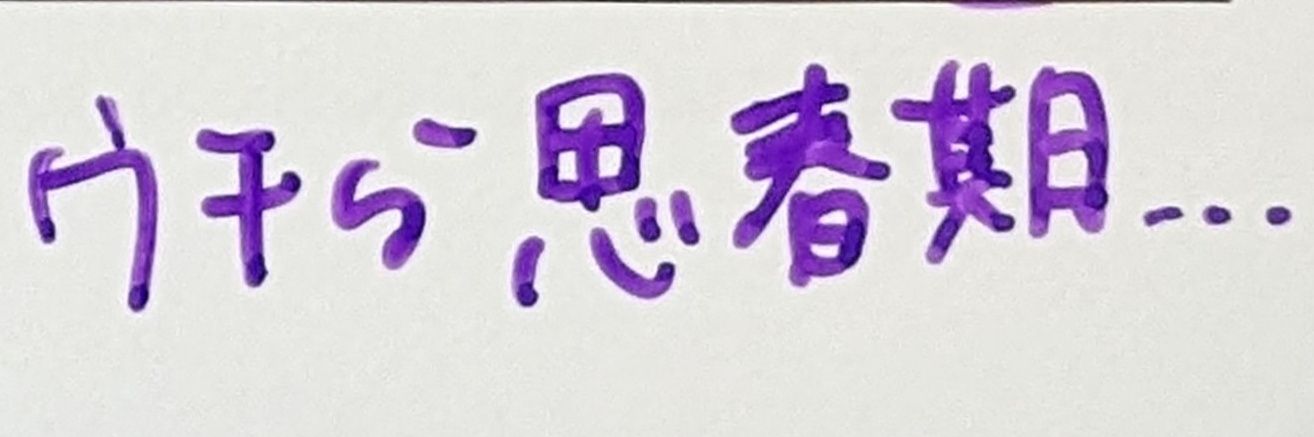 ウチら思春期...